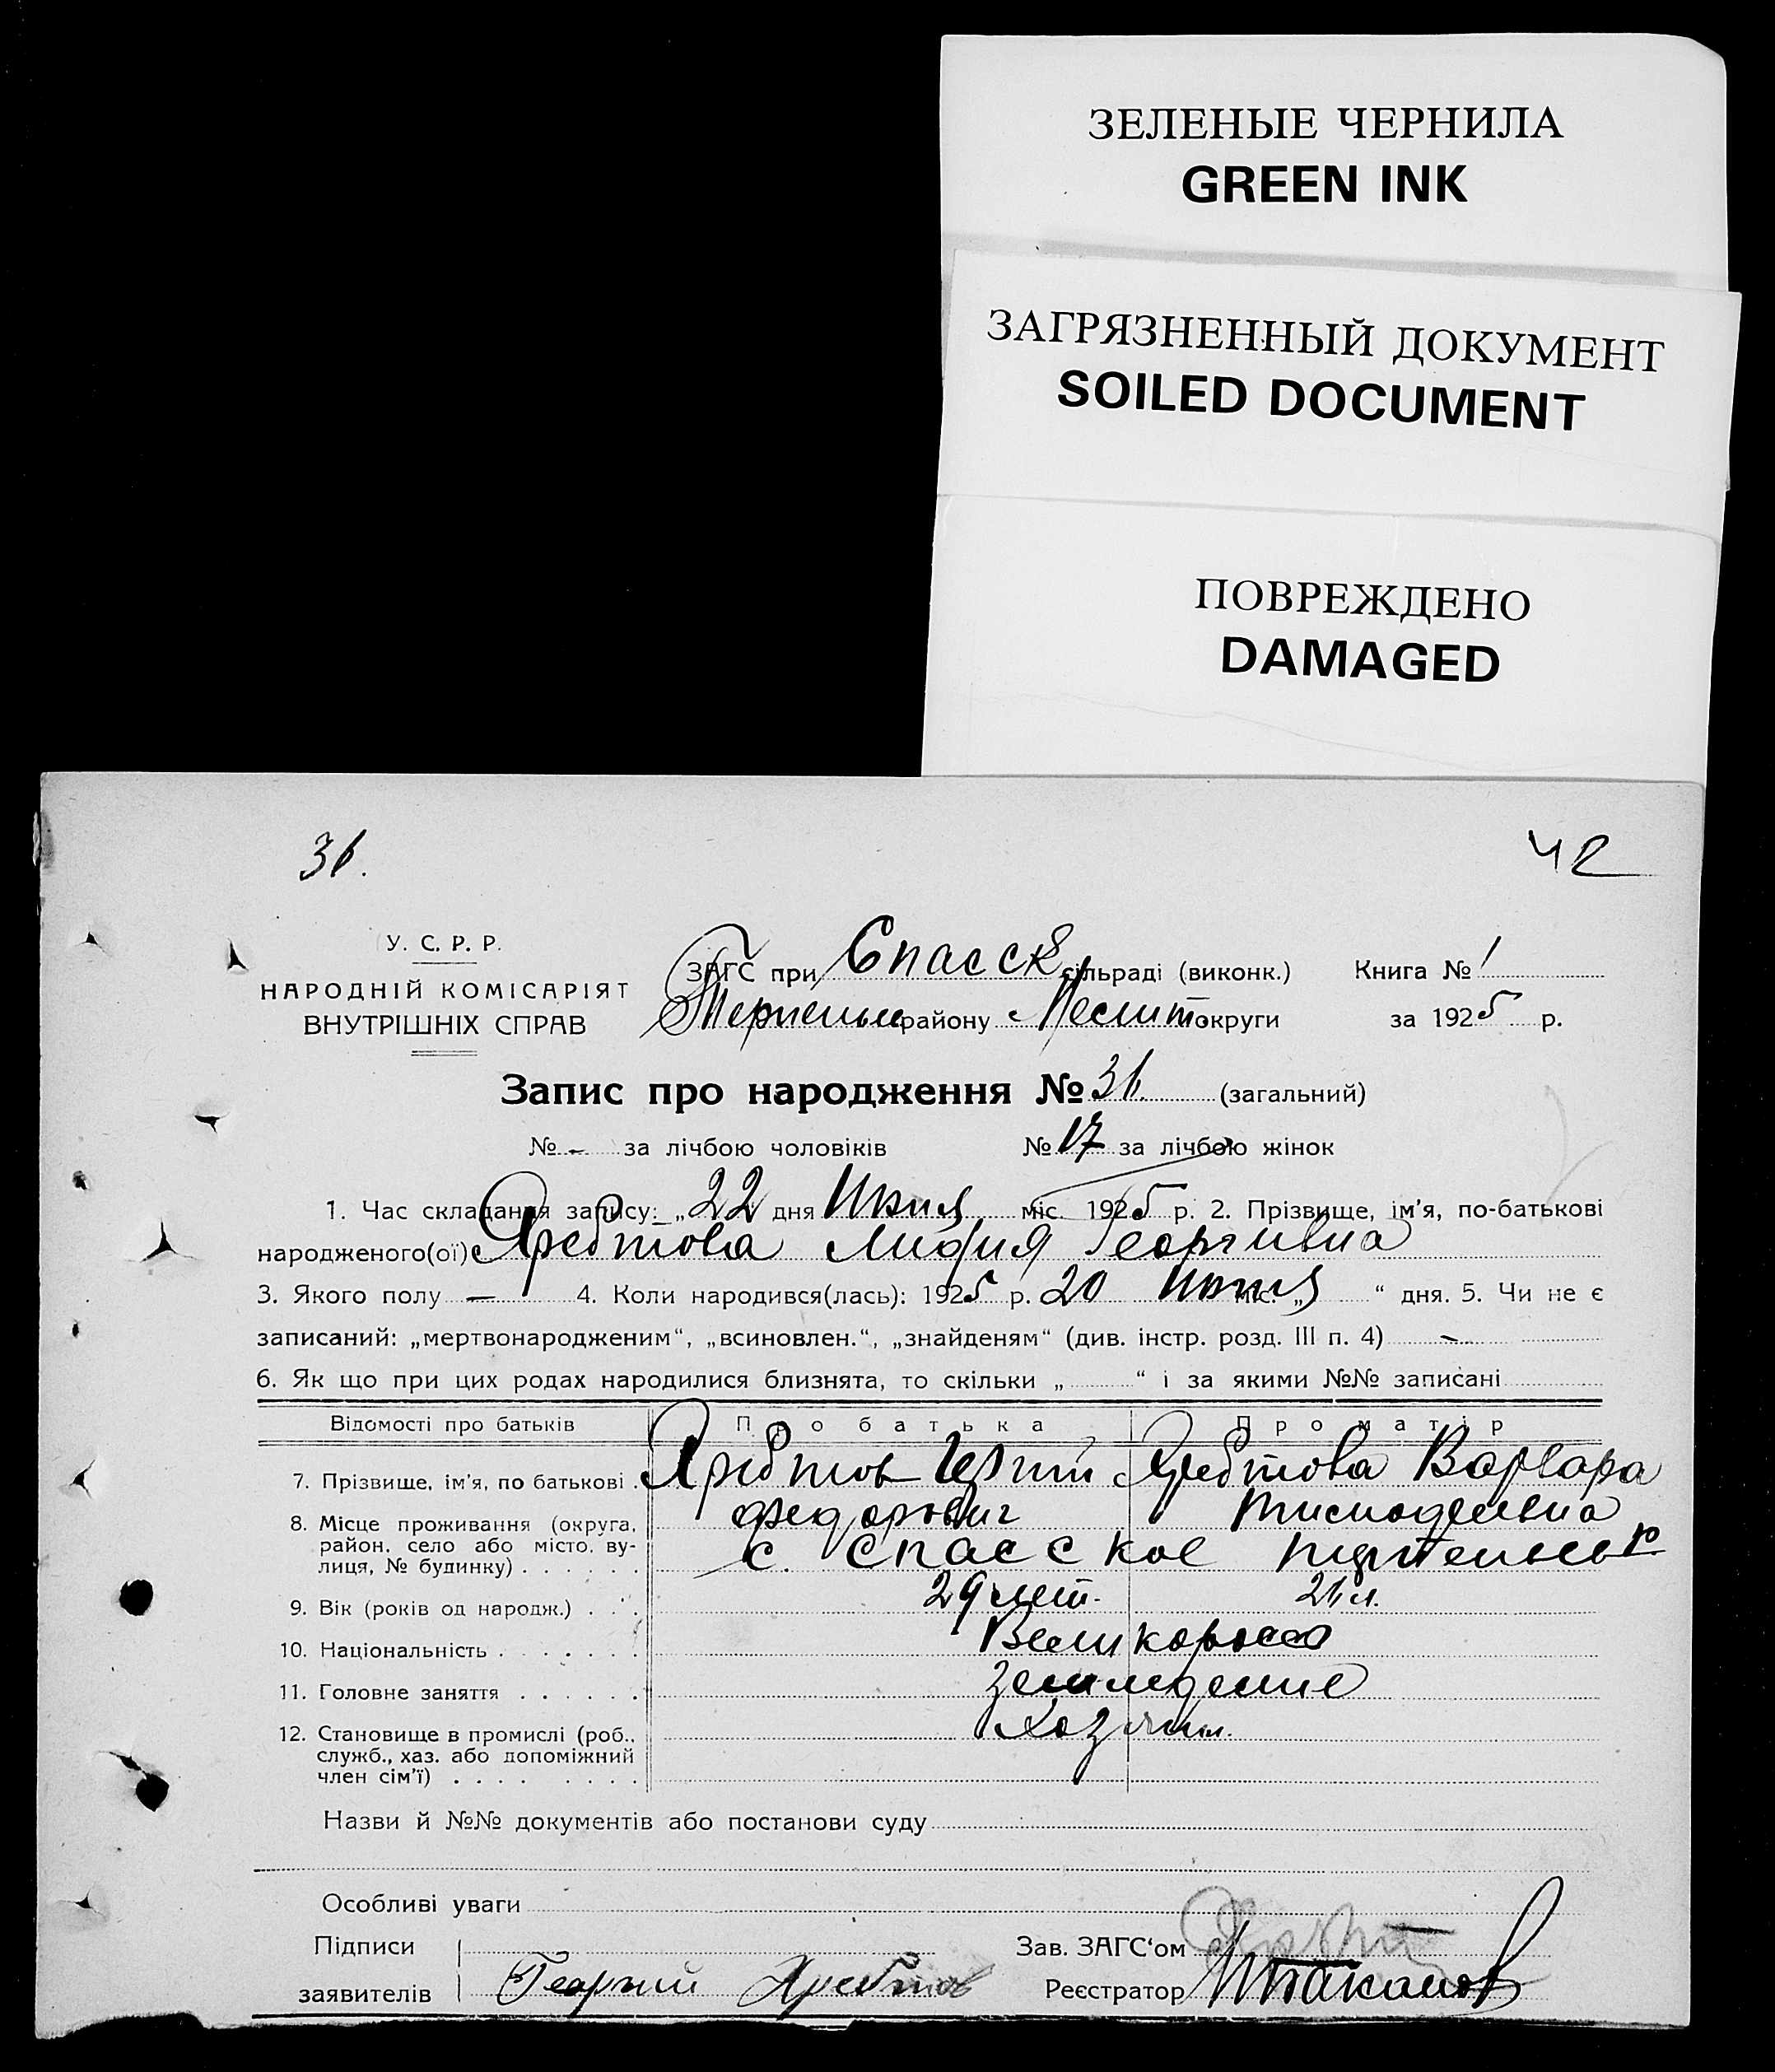 ЗЕЛЕНЫЕ ЧЕРНИЛА
GREEN INK
ЗАГРЯЗНЕННЫЙ ДОКУМЕНТ
SOILED DOCUMENT
ПОВРЕЖДЕНО
DAMAGED
31.
42
У. С. Р. Р.
НАРОДНІЙ КОМІСАРІЯТ
ВНУТРІШНІХ СПРАВ
ЗАГС при Спасск сільраді (виконк.) Книга № 1
району Мелит округи за 1925 р.
Запис про народження № 31. (загальний)
№ - за лічбою чоловіків № 17 за лічбою жінок
1. Час складання запису: „22 дня Июня міс. 1925 р. 2. Прізвище, ім'я, по-батькові
народженого(ої) Аребтова Лидия Георгивна
3. Якого полу — 4. Коли народився(лась): 1925 р. 20 Июня міс. „ “ дня. 5. Чи не є
записаний: „мертвонародженим“, „всиновлен.“, „знайденям“ (див. інстр. розд. III п. 4) -
6. Як що при цих родах народилися близнята, то скільки „ “ і за якими №№ записані
Відомості про батьків Про батька Про матір
7. Прізвище, ім'я, по батькові . Аребтов Аребтова Варвара
Федорович
8. Місце проживання (округа, район, село або місто, вулиця, № будинку) . . . . . . с. Спасское
9. Вік (років од народж.) . . . 29 лет. 21 л.
10. Національність . . . . . . . Великоросс
11. Головне заняття . . . . . . Земледелие
12. Становище в промислі (роб., служб., хаз. або допоміжний член сім'ї) . . . . . . . . Хозяин.
Назви й №№ документів або постанови суду
Особливі уваги
Підписи Зав. ЗАГС'ом
заявителів Георгий Аребтов Реєстратор